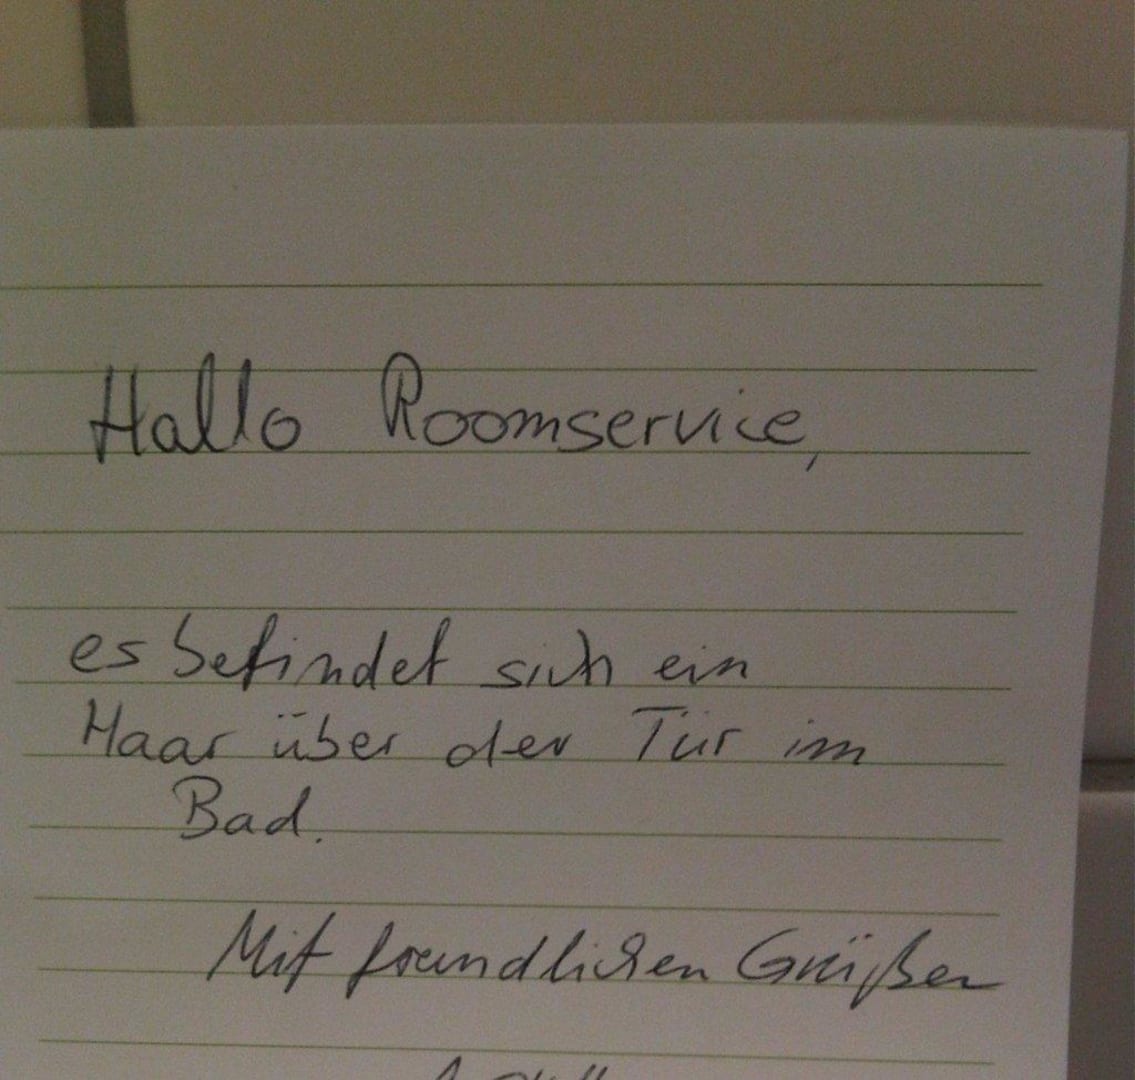 Hallo Roomservice,
es befindet sich ein
Haar über der Tür im
Bad.
Mit freundlichen Grüßen